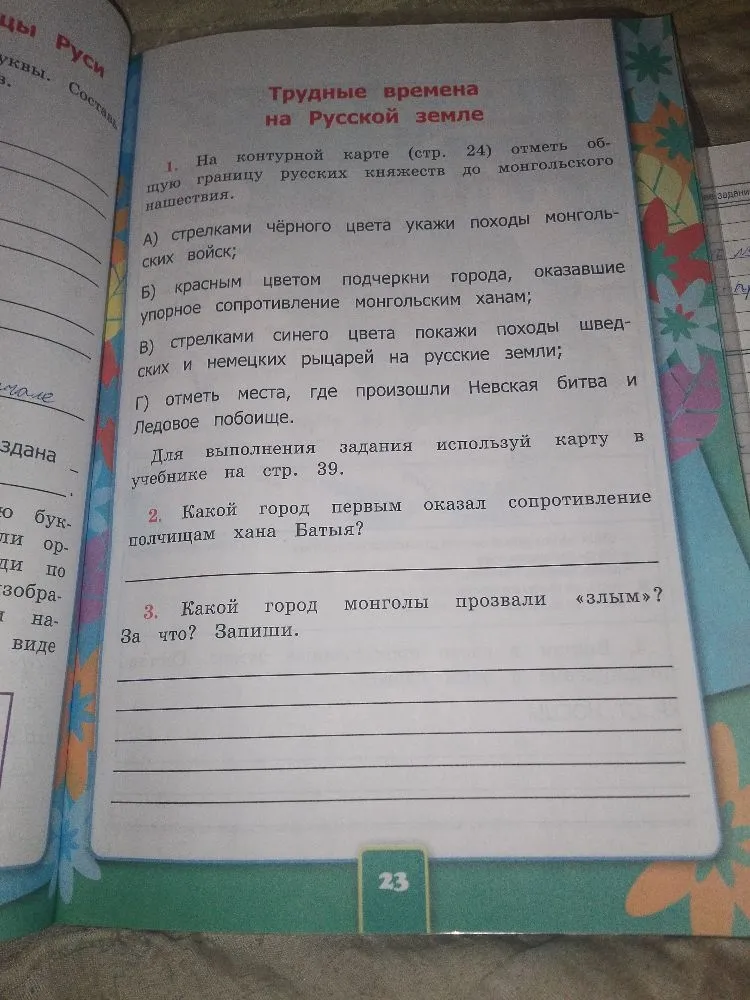 цы Руси
уквы. Составь
в.
мале
здана _
ю бук-
ли ор-
ди по
изобра-
и на-
виде
Трудные времена
на Русской земле
1. На контурной карте (стр. 24) отметь об-
щую границу русских княжеств до монгольского
нашествия.
А) стрелками чёрного цвета укажи походы монголь-
ских войск;
Б) красным цветом подчеркни города, оказавшие
упорное сопротивление монгольским ханам;
В) стрелками синего цвета покажи походы швед-
ских и немецких рыцарей на русские земли;
Г) отметь места, где произошли Невская битва и
Ледовое побоище.
Для выполнения задания используй карту в
учебнике на стр. 39.
2. Какой город первым оказал сопротивление
полчищам хана Батыя?
3. Какой город монголы прозвали «злым»?
За что? Запиши.
23
задани